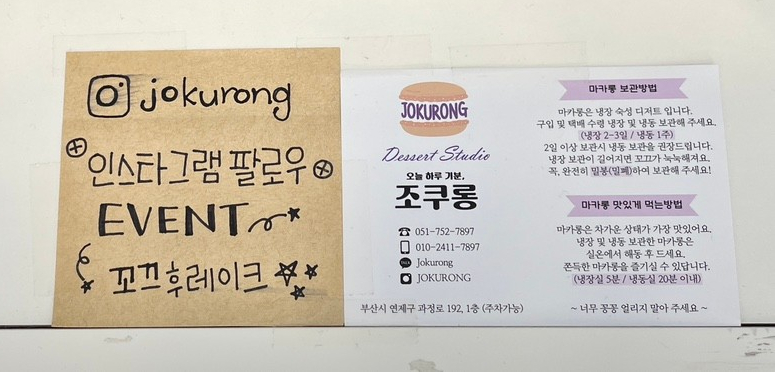 jokurong
인스타그램 팔로우
EVENT
꼬끄후레이크
JOKURONG
Dessert Studio
오늘 하루 기분,
조쿠롱
051-752-7897
010-2411-7897
TALK Jokurong
JOKURONG
부산시 연제구 과정로 192, 1층 (주차가능)
마카롱 보관방법
마카롱은 냉장 숙성 디저트 입니다.
구입 및 택배 수령 냉장 및 냉동 보관해 주세요.
(냉장 2-3일 / 냉동 1주)
2일 이상 보관시 냉동 보관을 권장드립니다.
냉장 보관이 길어지면 꼬끄가 눅눅해져요.
꼭, 완전히 밀봉(밀폐)하여 보관해 주세요!
마카롱 맛있게 먹는방법
마카롱은 차가운 상태가 가장 맛있어요.
냉장 및 냉동 보관한 마카롱은
실온에서 해동 후 드세요.
쫀득한 마카롱을 즐기실 수 있답니다.
(냉장실 5분 / 냉동실 20분 이내)
~ 너무 꽁꽁 얼리지 말아 주세요 ~